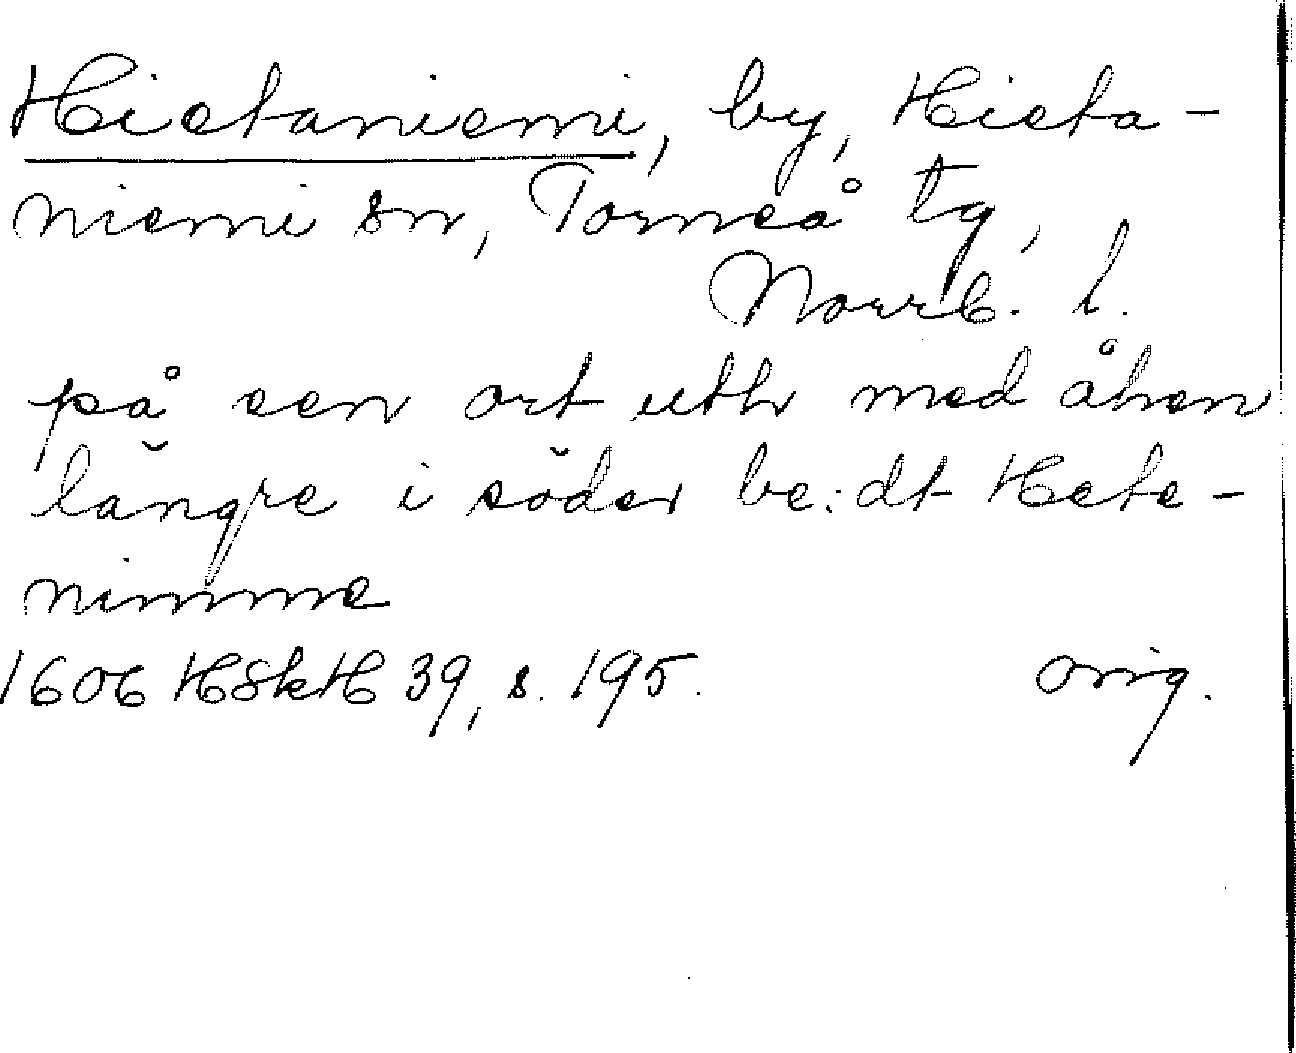 Hietaniemi, by, Hieta-
niemi sn, Torneå tg,
Norrb. l.
på een ort uth med åhen
längre i söder be:dt Hete-
nimme
1606 HSkH 39, s. 195. orig.